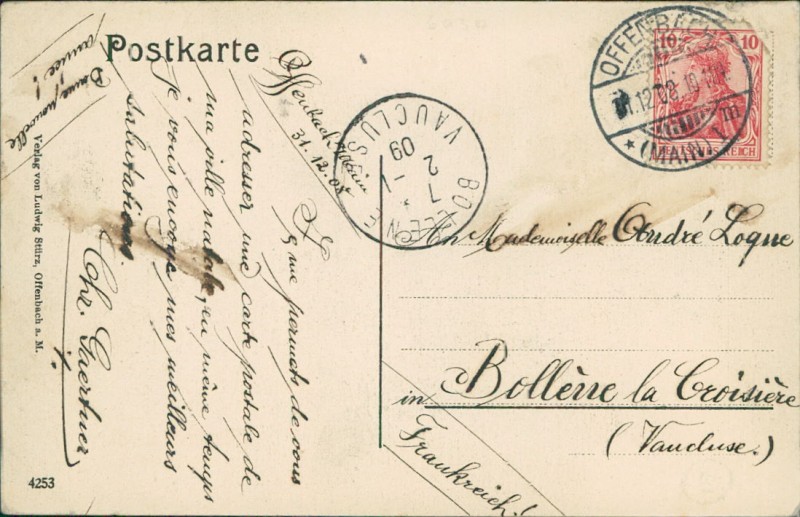 Postkarte
Bonne nouvelle
année !
Offenbach Main
31. 12. 08
Je me permets de vous
adresser une carte postale de
ma ville natale, en même temps
je vous envoye mes meilleurs
salutations.
Chr. Gaertner
Verlag von Ludwig Stürz, Offenbach a. M.
4253
BOLLENE
VAUCLUSE
7
2 -1
09
OFFENBACH
31.12.08. 10-11
* (MAIN) 1
10 10
DEUTSCHES REICH
An Mademoiselle André Loque
in Bollène la Croisière
(Vaucluse.)
Frankreich!